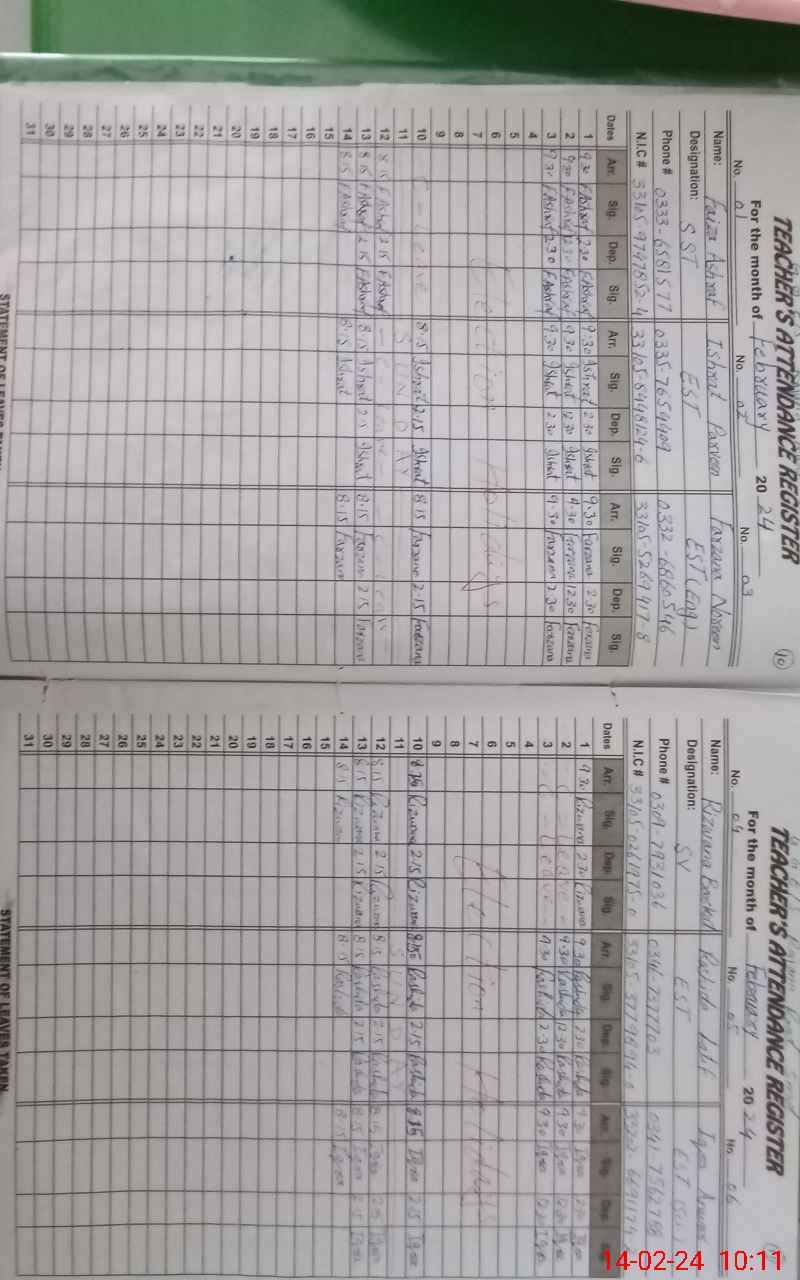 TEACHER'S ATTENDANCE REGISTER
10
For the month of February 2024
No. 01 No. 02 No. 03
Name: Faiza Ashraf Ishrat Parveen Farzana Noreen
Designation: SST EST EST (Eng)
Phone # 0333-6581577 0335-7654409 0332-6860546
N.I.C # 33105-9747852-4 33105-8498124-6 33105-5269417-8
Dates Arr. Sig. Dep. Sig. Arr. Sig. Dep. Sig. Arr. Sig. Dep. Sig.
1 9.30 FAshraf 2.30 FAshraf 9.30 Ishrat 2.30 Ishrat 9.30 Farzana 2.30 Farzana
2 9.30 FAshraf 12.30 FAshraf 9.30 Ishrat 12.30 Ishrat 9.30 Farzana 12.30 Farzana
3 9.30 FAshraf 2.30 FAshraf 9.30 Ishrat 2.30 Ishrat 9.30 Farzana 2.30 Farzana
4
5
6 Holidays
7 Election
8
9
10 Leave 8.15 Ishrat 2.15 Ishrat 8.15 Farzana 2.15 Farzana
11 SUNDAY
12 8.15 FAshraf 2.15 FAshraf
13 8.15 FAshraf 2.15 FAshraf 8.15 Ishrat 2.15 Ishrat 8.15 Farzana 2.15 Farzana
14 8.15 FAshraf 8.15 Ishrat 8.15 Farzana
15
16
17
18
19
20
21
22
23
24
25
26
27
28
29
30
31
STATEMENT OF LEAVES TAKEN
TEACHER'S ATTENDANCE REGISTER
For the month of February 2024
No. 04 No. 05 No. 06
Name: Rizwana Rashida Latif Iqra
Designation: SV EST EST
Phone # 0309-7931036
N.I.C # 33105-0261975-0
Dates Arr. Sig. Dep. Sig. Arr. Sig. Dep. Sig. Arr. Sig. Dep. Sig.
1 9.30 Rizwana 2.30 Rizwana 9.30 Rashida 2.30 Rashida 9.30 Iqra 2.30 Iqra
2 Leave 9.30 Rashida 12.30 Rashida 9.30 Iqra 12.30 Iqra
3 Leave 9.30 Rashida 2.30 Rashida 9.30 Iqra Iqra
4
5
6 Holidays
7 Election
8
9
10 8.15 Rizwana 2.15 Rizwana 8.15 Rashida 2.15 Rashida 8.15 Iqra 2.15 Iqra
11 SUNDAY
12 8.15 Rizwana 2.15 Rizwana 8.15 Rashida 2.15 Rashida 8.15 Iqra 2.15 Iqra
13 8.15 Rizwana 2.15 Rizwana 8.15 Rashida 2.15 Rashida 8.15 Iqra 2.15 Iqra
14 8.15 Rizwana 8.15 Rashida 8.15 Iqra
15
16
17
18
19
20
21
22
23
24
25
26
27
28
29
30
31
STATEMENT OF LEAVES TAKEN
14-02-24 10:11